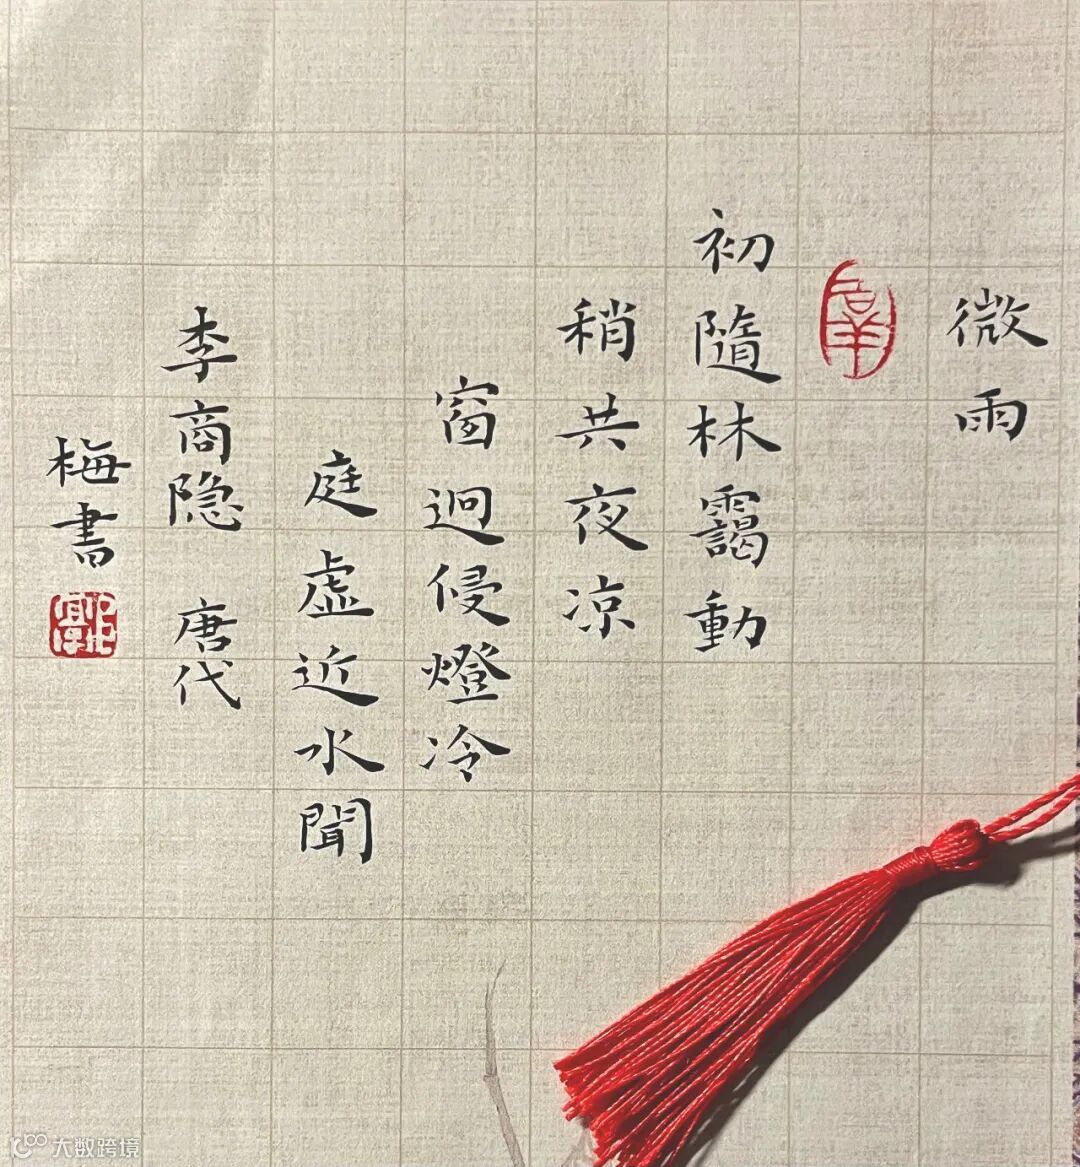 微雨
初隨林靄動
稍共夜凉
窗迥侵燈冷
庭虛近水聞
李商隐 唐代
梅書
大数跨境